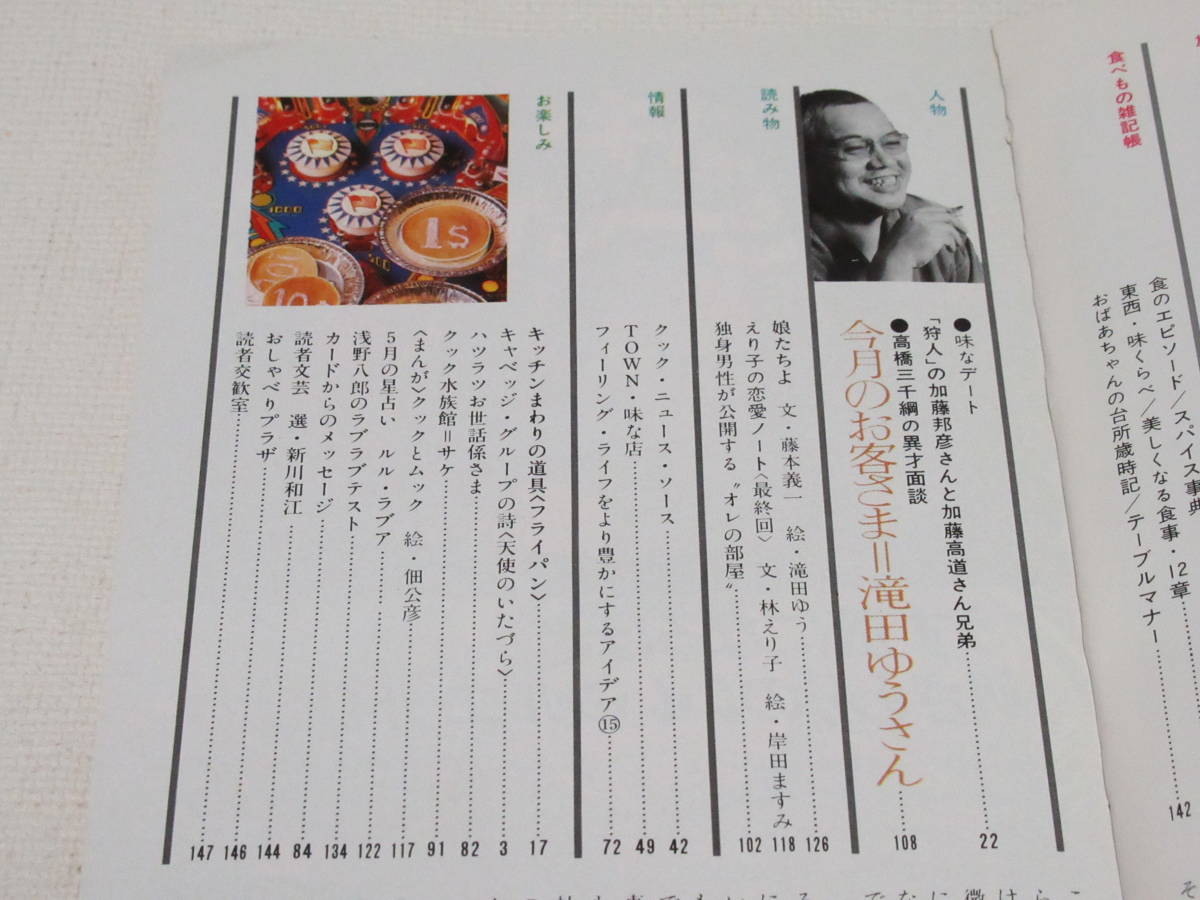 食べもの雑記帳
食のエピソード/スパイス事典
東西・味くらべ/美しくなる食事・12章
おばあちゃんの台所歳時記/テーブルマナー
142
人物
●味なデート
「狩人」の加藤邦彦さんと加藤高道さん兄弟 22
●高橋三千綱の異才面談
今月のお客さま=滝田ゆうさん 108
読み物
娘たちよ 文・藤本義一 絵・滝田ゆう 126
えり子の恋愛ノート〈最終回〉 文・林えり子 絵・岸田ますみ 118
独身男性が公開する〝オレの部屋〟 102
情報
クック・ニュース・ソース 42
TOWN・味な店 49
フィーリング・ライフをより豊かにするアイデア⑮ 72
お楽しみ
キッチンまわりの道具〈フライパン〉 17
キャベッジ・グループの詩〈天使のいたづら〉 3
ハツラツお世話係さま 82
クック水族館=サケ 91
〈まんが〉クックとムック 絵・佃公彦 117
5月の星占い ルル・ラブア 122
浅野八郎のラブラブテスト 134
カードからのメッセージ 84
読者文芸 選・新川和江 144
おしゃべりプラザ 146
読者交歓室 147
1$
1000